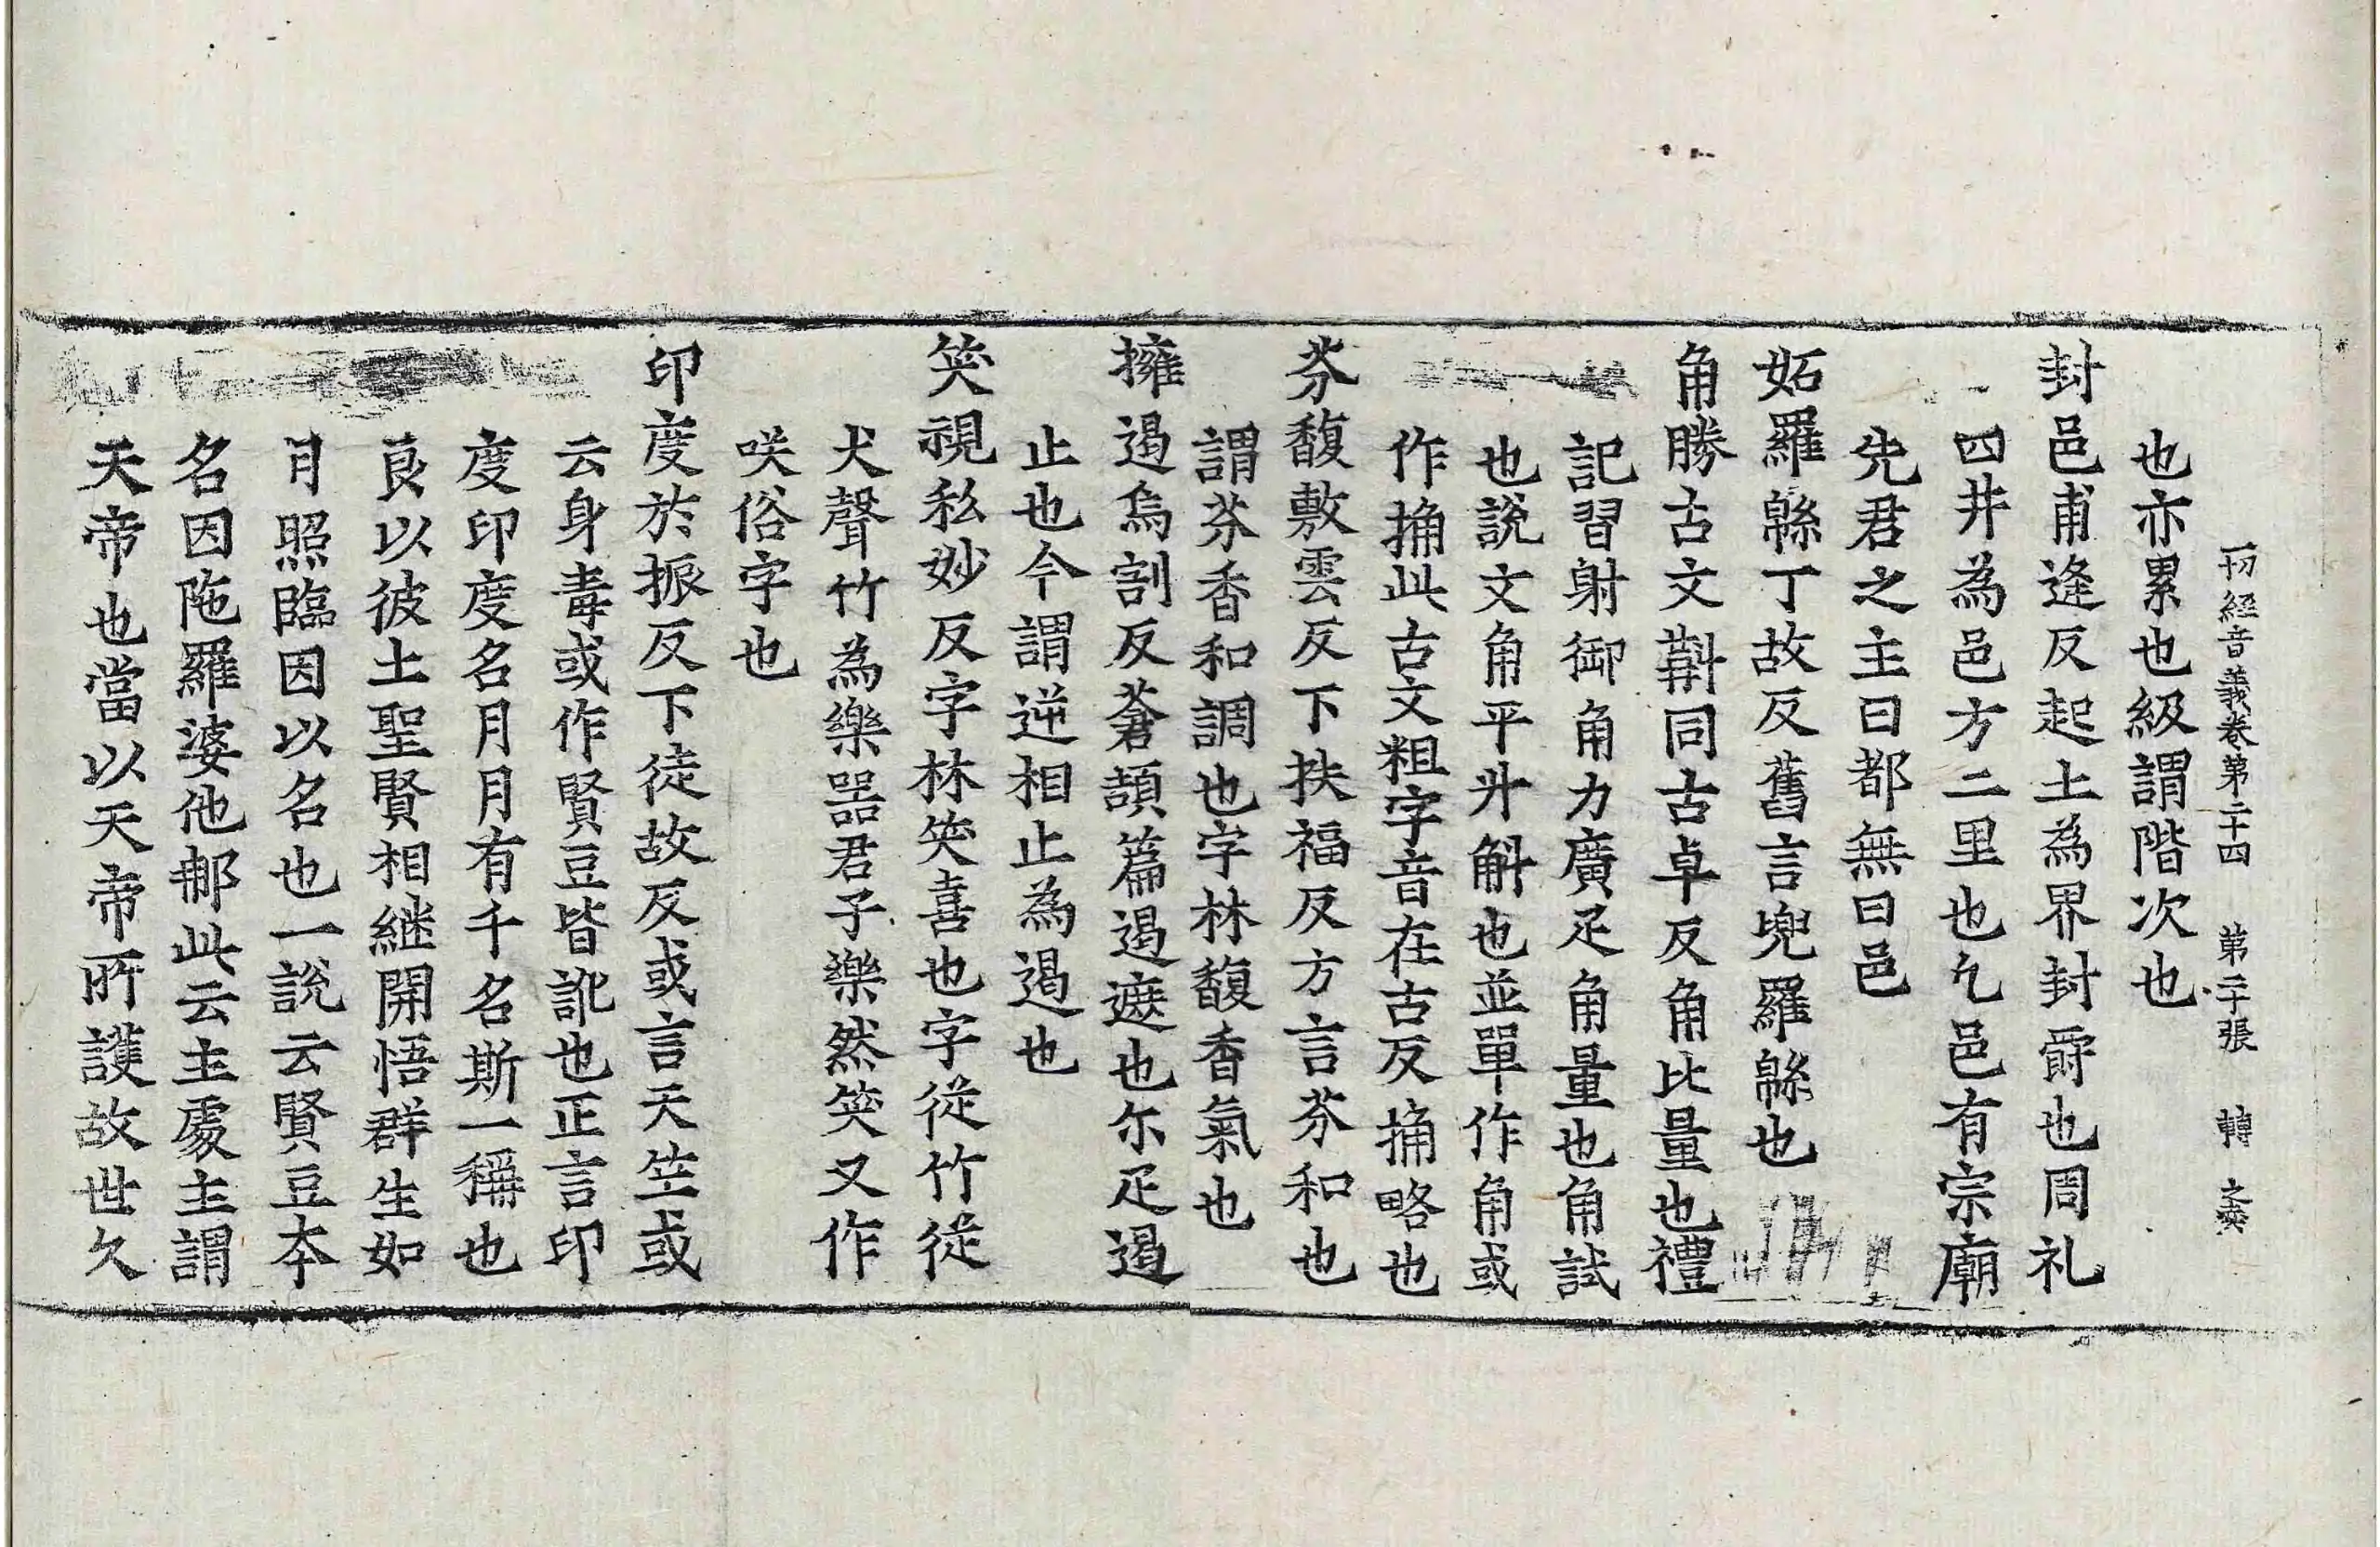 一切經音義卷第二十四 第二十張 轉 文
也亦累也級謂階次也
封邑甫逢反起土為界封爵也周礼
四井為邑方二里也凢邑有宗廟
先君之主曰都無曰邑
妬羅緜丁故反舊言兜羅緜也
角勝古文斠同古卓反角比量也禮
記習射御角力廣疋角量也角試
也說文角平斗斛也並單作角或
作捔此古文粗字音在古反捔略也
芬馥敷雲反下扶福反方言芬和也
謂芬香和調也字林馥香氣也
擁遏烏割反蒼頡篇遏遮也尒疋遏
止也今謂逆相止為遏也
笑視私妙反字林笑喜也字從竹從
犬聲竹為樂噐君子樂然笑又作
咲俗字也
印度於振反下徒故反或言天竺或
云身毒或作賢豆皆訛也正言印
度印度名月月有千名斯一稱也
良以彼土聖賢相継開悟群生如
月照臨因以名也一說云賢豆本
名因陁羅婆他郍此云主處主謂
天帝也當以天帝所護故世久